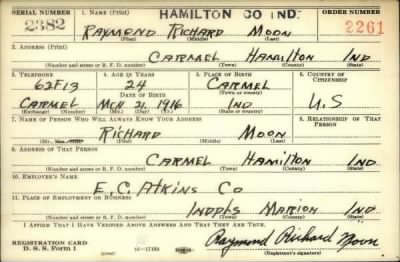 SERIAL NUMBER 1. NAME (Print) HAMILTON CO IND. ORDER NUMBER
2382 RAYMOND RICHARD MOON 2261
(First) (Middle) (Last)
2. ADDRESS (Print)
CARMEL HAMILTON IND
(Number and street or R. F. D. number) (Town) (County) (State)
3. TELEPHONE 4. AGE IN YEARS 5. PLACE OF BIRTH 6. COUNTRY OF CITIZENSHIP
62F13 24 CARMEL
DATE OF BIRTH (Town or county)
CARMEL MCH 21, 1916 IND U.S
(Exchange) (Number) (Mo.) (Day) (Yr.) (State or country)
7. NAME OF PERSON WHO WILL ALWAYS KNOW YOUR ADDRESS 8. RELATIONSHIP OF THAT PERSON
RICHARD MOON
(Mr., Mrs., Miss) (First) (Middle) (Last)
9. ADDRESS OF THAT PERSON
CARMEL HAMILTON IND
(Number and street or R. F. D. number) (Town) (County) (State)
10. EMPLOYER'S NAME
E. C. ATKINS CO
11. PLACE OF EMPLOYMENT OR BUSINESS
INDPLS MARION IND
(Number and street or R. F. D. number) (Town) (County) (State)
I AFFIRM THAT I HAVE VERIFIED ABOVE ANSWERS AND THAT THEY ARE TRUE.
REGISTRATION CARD
D. S. S. Form 1 Raymond Richard Moon
(Registrant's signature)